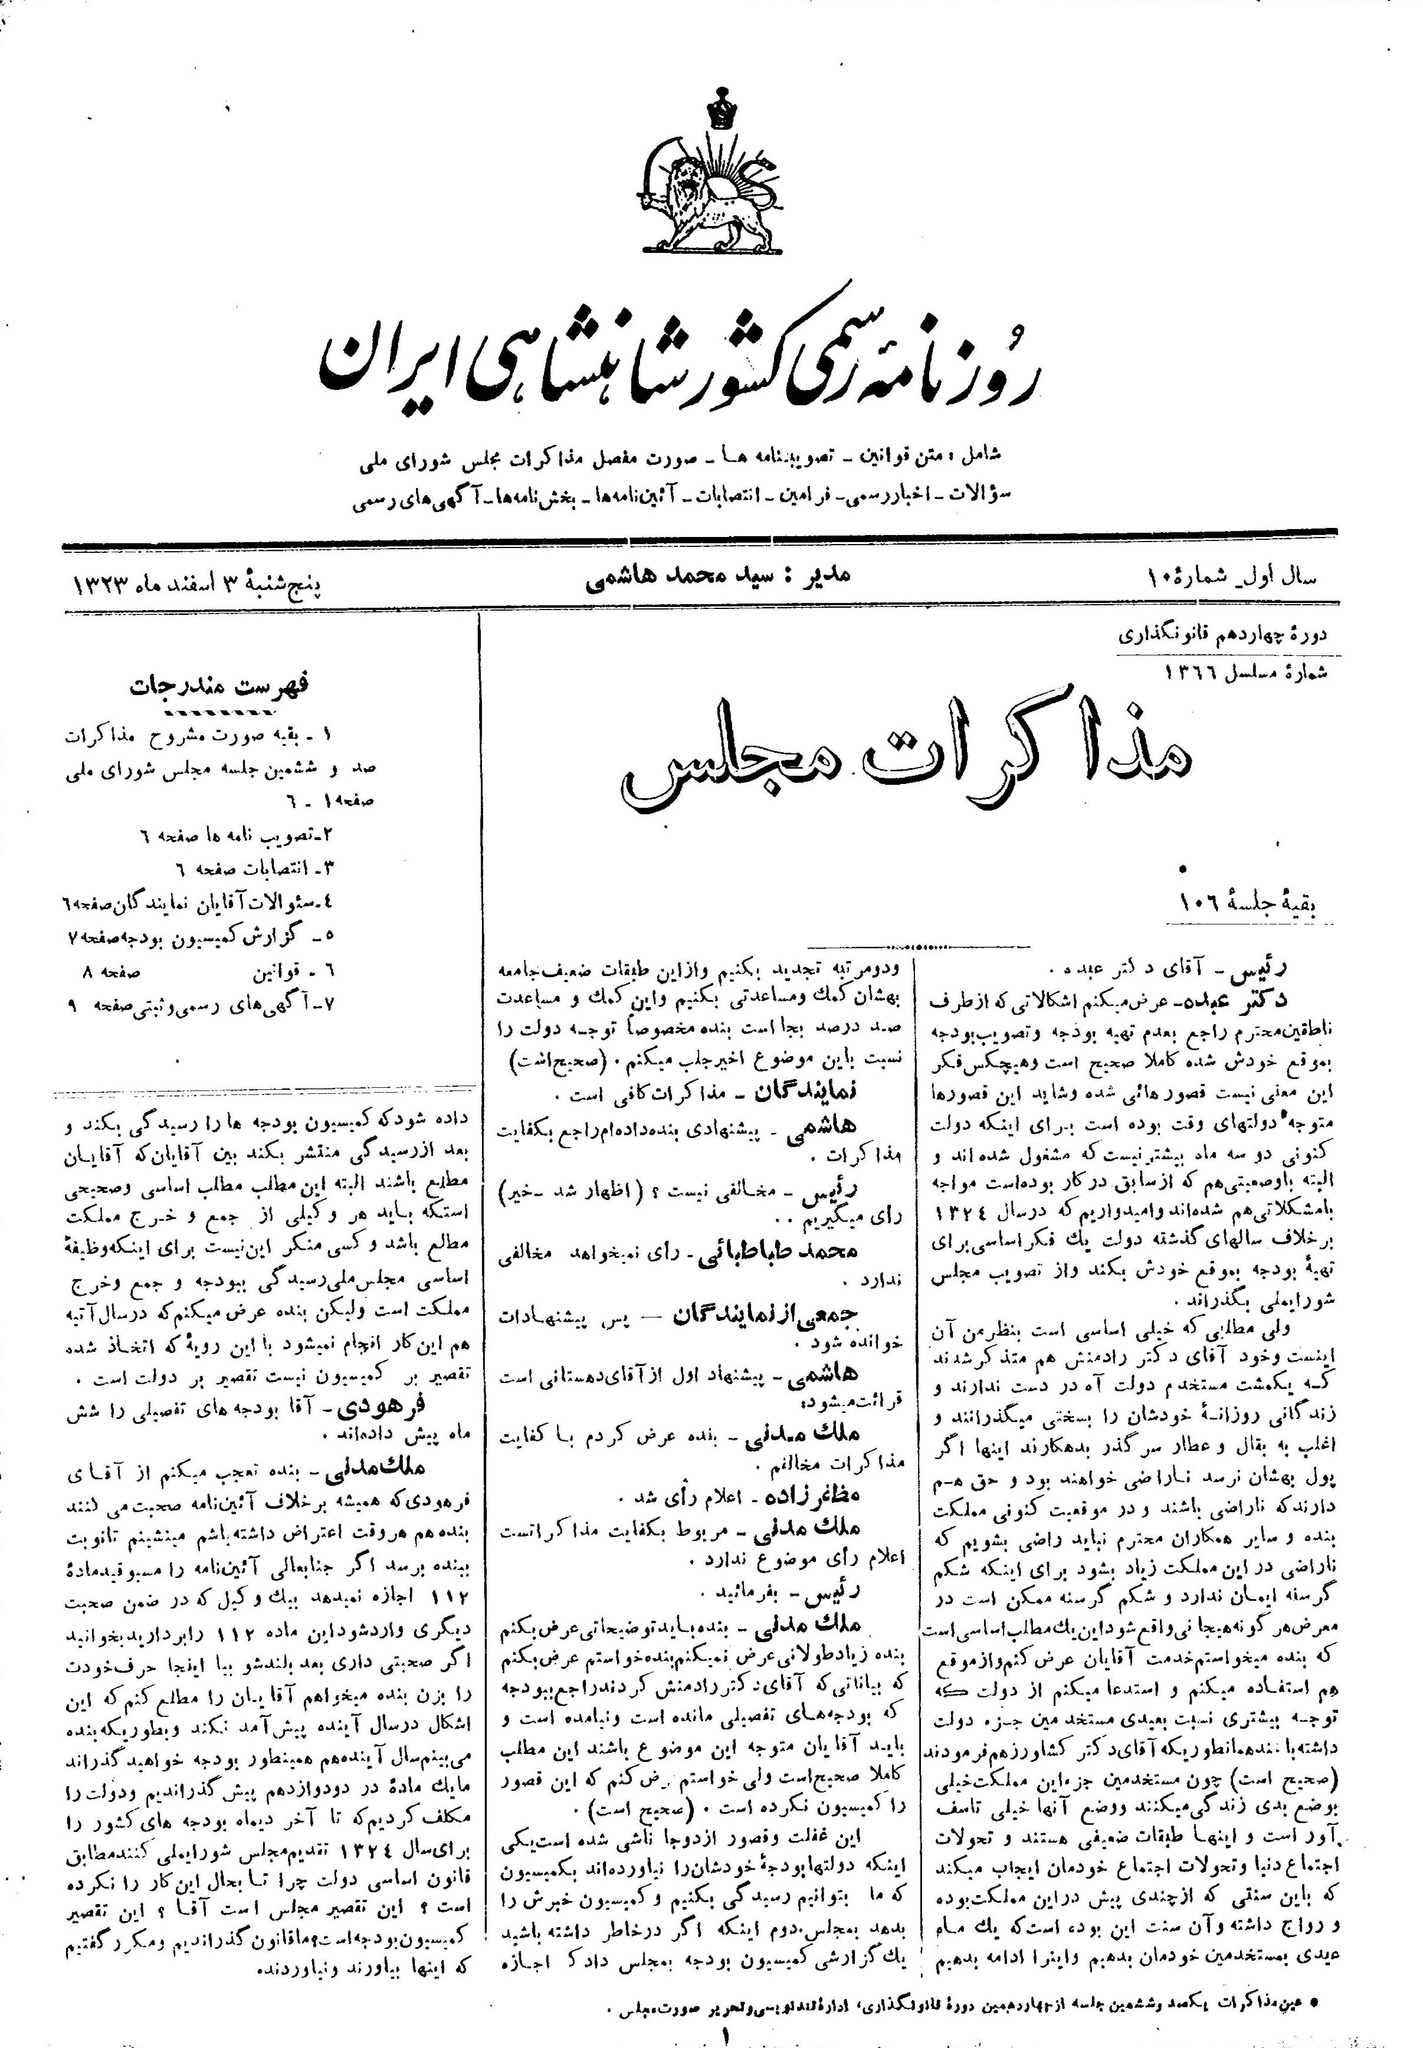 روزنامهٔ رسمی کشور شاهنشاهی ایران
شامل : متن قوانین - تصویبنامه ها - صورت مفصل مذاکرات مجلس شورای ملی
سؤالات - اخبار رسمی - فرامین - انتصابات - آئین‌نامه‌ها - بخش‌نامه‌ها - آگهی‌های رسمی
سال اول - شمارهٔ ۱۰
مدیر : سید محمد هاشمی
پنج‌شنبهٔ ۳ اسفند ماه ۱۳۲۳
دورهٔ چهاردهم قانونگذاری
شمارهٔ مسلسل ۱۳۶۶
مذاکرات مجلس
بقیهٔ جلسهٔ ۱۰۶
رئیس - آقای دکتر عبده .
دکتر عبده - عرض میکنم اشکالاتی که از طرف
ناطقین محترم راجع بعدم تهیه بودجه وتصویب بودجه
بموقع خودش شده کاملا صحیح است وهیچکس فکر
این معنی نیست قصورهائی شده وشاید این قصورها
متوجه دولتهای وقت بوده است برای اینکه دولت
کنونی دو سه ماه بیشتر نیست که مشغول شده‌اند و
البته باوضعیتی هم که از سابق در کار بوده‌است مواجه
بامشکلاتی هم شده‌اند وامیدواریم که در سال ۱۳۲۴
برخلاف سالهای گذشته دولت یك فکر اساسی برای
تهیهٔ بودجه بموقع خودش بکند واز تصویب مجلس
شورایملی بگذراند .
ولی مطلبی که خیلی اساسی است بنظر من آن
اینست وخود آقای دکتر رادمنش هم متذکر شدند
که یکمشت مستخدم دولت آه در دست ندارند و
زندگانی روزانهٔ خودشان را بسختی میگذرانند و
اغلب به بقال و عطار سر گذر بدهکارند اینها اگر
پول بهشان نرسد ناراضی خواهند بود و حق هم
دارند که ناراضی باشند و در موقعیت کنونی مملکت
بنده و سایر همکاران محترم نباید راضی بشویم که
ناراضی در این مملکت زیاد بشود برای اینکه شکم
گرسنه ایمان ندارد و شکم گرسنه ممکن است در
معرض هر گونه هیجانی واقع شود این یك مطلب اساسی است
که بنده میخواستم خدمت آقایان عرض کنم واز موقع
هم استفاده میکنم و استدعا میکنم از دولت که
توجه بیشتری نسبت بعیدی مستخدمین جزء دولت
داشته باشند همانطوریکه آقای دکتر کشاورز هم فرمودند
(صحیح است) چون مستخدمین جزء این مملکت خیلی
بوضع بدی زندگی میکنند ووضع آنها خیلی تاسف
آور است و اینها طبقات ضعیفی هستند و تحولات
اجتماع دنیا وتحولات اجتماع خودمان ایجاب میکند
که باین سنتی که از چندی پیش در این مملکت بوده
و رواج داشته وآن سنت این بوده است که یك ماه
عیدی بمستخدمین خودمان بدهیم واینرا ادامه بدهیم
ودومرتبه تجدید بکنیم وازاین طبقات ضعیف جامعه
بهشان کمك ومساعدتی بکنیم واین کمك و مساعدت
صد درصد بجا است بنده مخصوصاً توجه دولت را
نسبت باین موضوع اخیر جلب میکنم . (صحیح‌است)
نمایندگان - مذاکرات کافی است .
هاشمی - پیشنهادی بنده داده‌ام راجع بکفایت
مذاکرات .
رئیس - مخالفی نیست ؟ (اظهار شد - خیر)
رأی میگیریم ..
محمد طباطبائی - رأی نمیخواهد مخالفی
ندارد .
جمعی از نمایندگان — پس پیشنهادات
خوانده شود .
هاشمی - پیشنهاد اول از آقای دهستانی است
قرائت میشود:
ملك مدنی - بنده عرض کردم با کفایت
مذاکرات مخالفم .
مظفرزاده - اعلام رأی شد .
ملك مدنی - مربوط بکفایت مذاکراتست
اعلام رأی موضوع ندارد .
رئیس - بفرمائید .
ملك مدنی - بنده باید توضیحاتی عرض بکنم
بنده زیاد طولانی عرض نمیکنم بنده خواستم عرض بکنم
که بیاناتی که آقای دکتر رادمنش کردند راجع ببودجه
که بودجه‌های تفصیلی مانده است ونیامده است و
باید آقایان متوجه این موضوع باشند این مطلب
کاملا صحیح است ولی خواستم عرض کنم که این قصور
را کمیسیون نکرده است . (صحیح است) .
این غفلت وقصور از دوجا ناشی شده است یکی
اینکه دولتها بودجهٔ خودشان را نیاورده‌اند بکمیسیون
که ما بتوانیم رسیدگی بکنیم و کمیسیون خبرش را
بدهد بمجلس. دوم اینکه اگر در خاطر داشته باشید
یك گزارشی کمیسیون بودجه بمجلس داد که اجازه
فهرست مندرجات
۱ - بقیه صورت مشروح مذاکرات
صد و ششمین جلسه مجلس شورای ملی
صفحه ۱ - ۶
۲- تصویب نامه ها صفحه ۶
۳- انتصابات صفحه ۶
۴- سئوالات آقایان نمایندگان صفحه ۶
۵- گزارش کمیسیون بودجه صفحه ۷
۶ - قوانین صفحه ۸
۷- آگهی‌های رسمی و ثبتی صفحه ۹
داده شود که کمیسیون بودجه ها را رسیدگی بکند و
بعد از رسیدگی منتشر بکند بین آقایان که آقایان
مطلع باشند البته این مطلب مطلب اساسی وصحیحی
استکه باید هر وکیلی از جمع و خرج مملکت
مطالع باشد و کسی منکر این نیست برای اینکه وظیفهٔ
اساسی مجلس ملی رسیدگی ببودجه و جمع وخرج
مملکت است ولیکن بنده عرض میکنم که در سال آتیه
هم این کار انجام نمیشود با این رویهٔ که اتخاذ شده
تقصیر بر کمیسیون نیست تقصیر بر دولت است .
فرهودی - آقا بودجه های تفصیلی را شش
ماه پیش داده‌اند .
ملك مدنی - بنده تعجب میکنم از آقای
فرهودی که همیشه برخلاف آئین‌نامه صحبت می کنند
بنده هم هروقت اعتراض داشته باشم مینشینم تانوبت
ببنده برسد اگر جنابعالی آئین‌نامه را مسبوقید مادهٔ
۱۱۲ اجازه نمیدهد بیك وکیل که در ضمن صحبت
دیگری وارد شود این ماده ۱۱۲ را بردارید بخوانید
اگر صحبتی داری بعد بلندشو بیا اینجا حرف خودت
را بزن بنده میخواهم آقایان را مطلع کنم که این
اشکال درسال آینده پیش آمد نکند وبطوریکه بنده
می‌بینم سال آینده هم همینطور بودجه خواهید گذراند
مایك مادهٔ در دودوازدهم پیش گذراندیم ودولت را
مکلف کردیم که تا آخر دیماه بودجه های کشور را
برای سال ۱۳۲۴ تقدیم مجلس شورایملی کنند مطابق
قانون اساسی دولت چرا تا بحال این کار را نکرده
است ؟ این تقصیر مجلس است آقا ؟ این تقصیر
کمیسیون بودجه است؟ ما قانون گذراندیم ومکرر گفتیم
که اینها بیاورند ونیاوردند.
● عین مذاکرات یکصد وششمین جلسه از چهاردهمین دورهٔ قانونگذاری، ادارهٔ تندنویسی و تحریر صورت مجلس .
۱